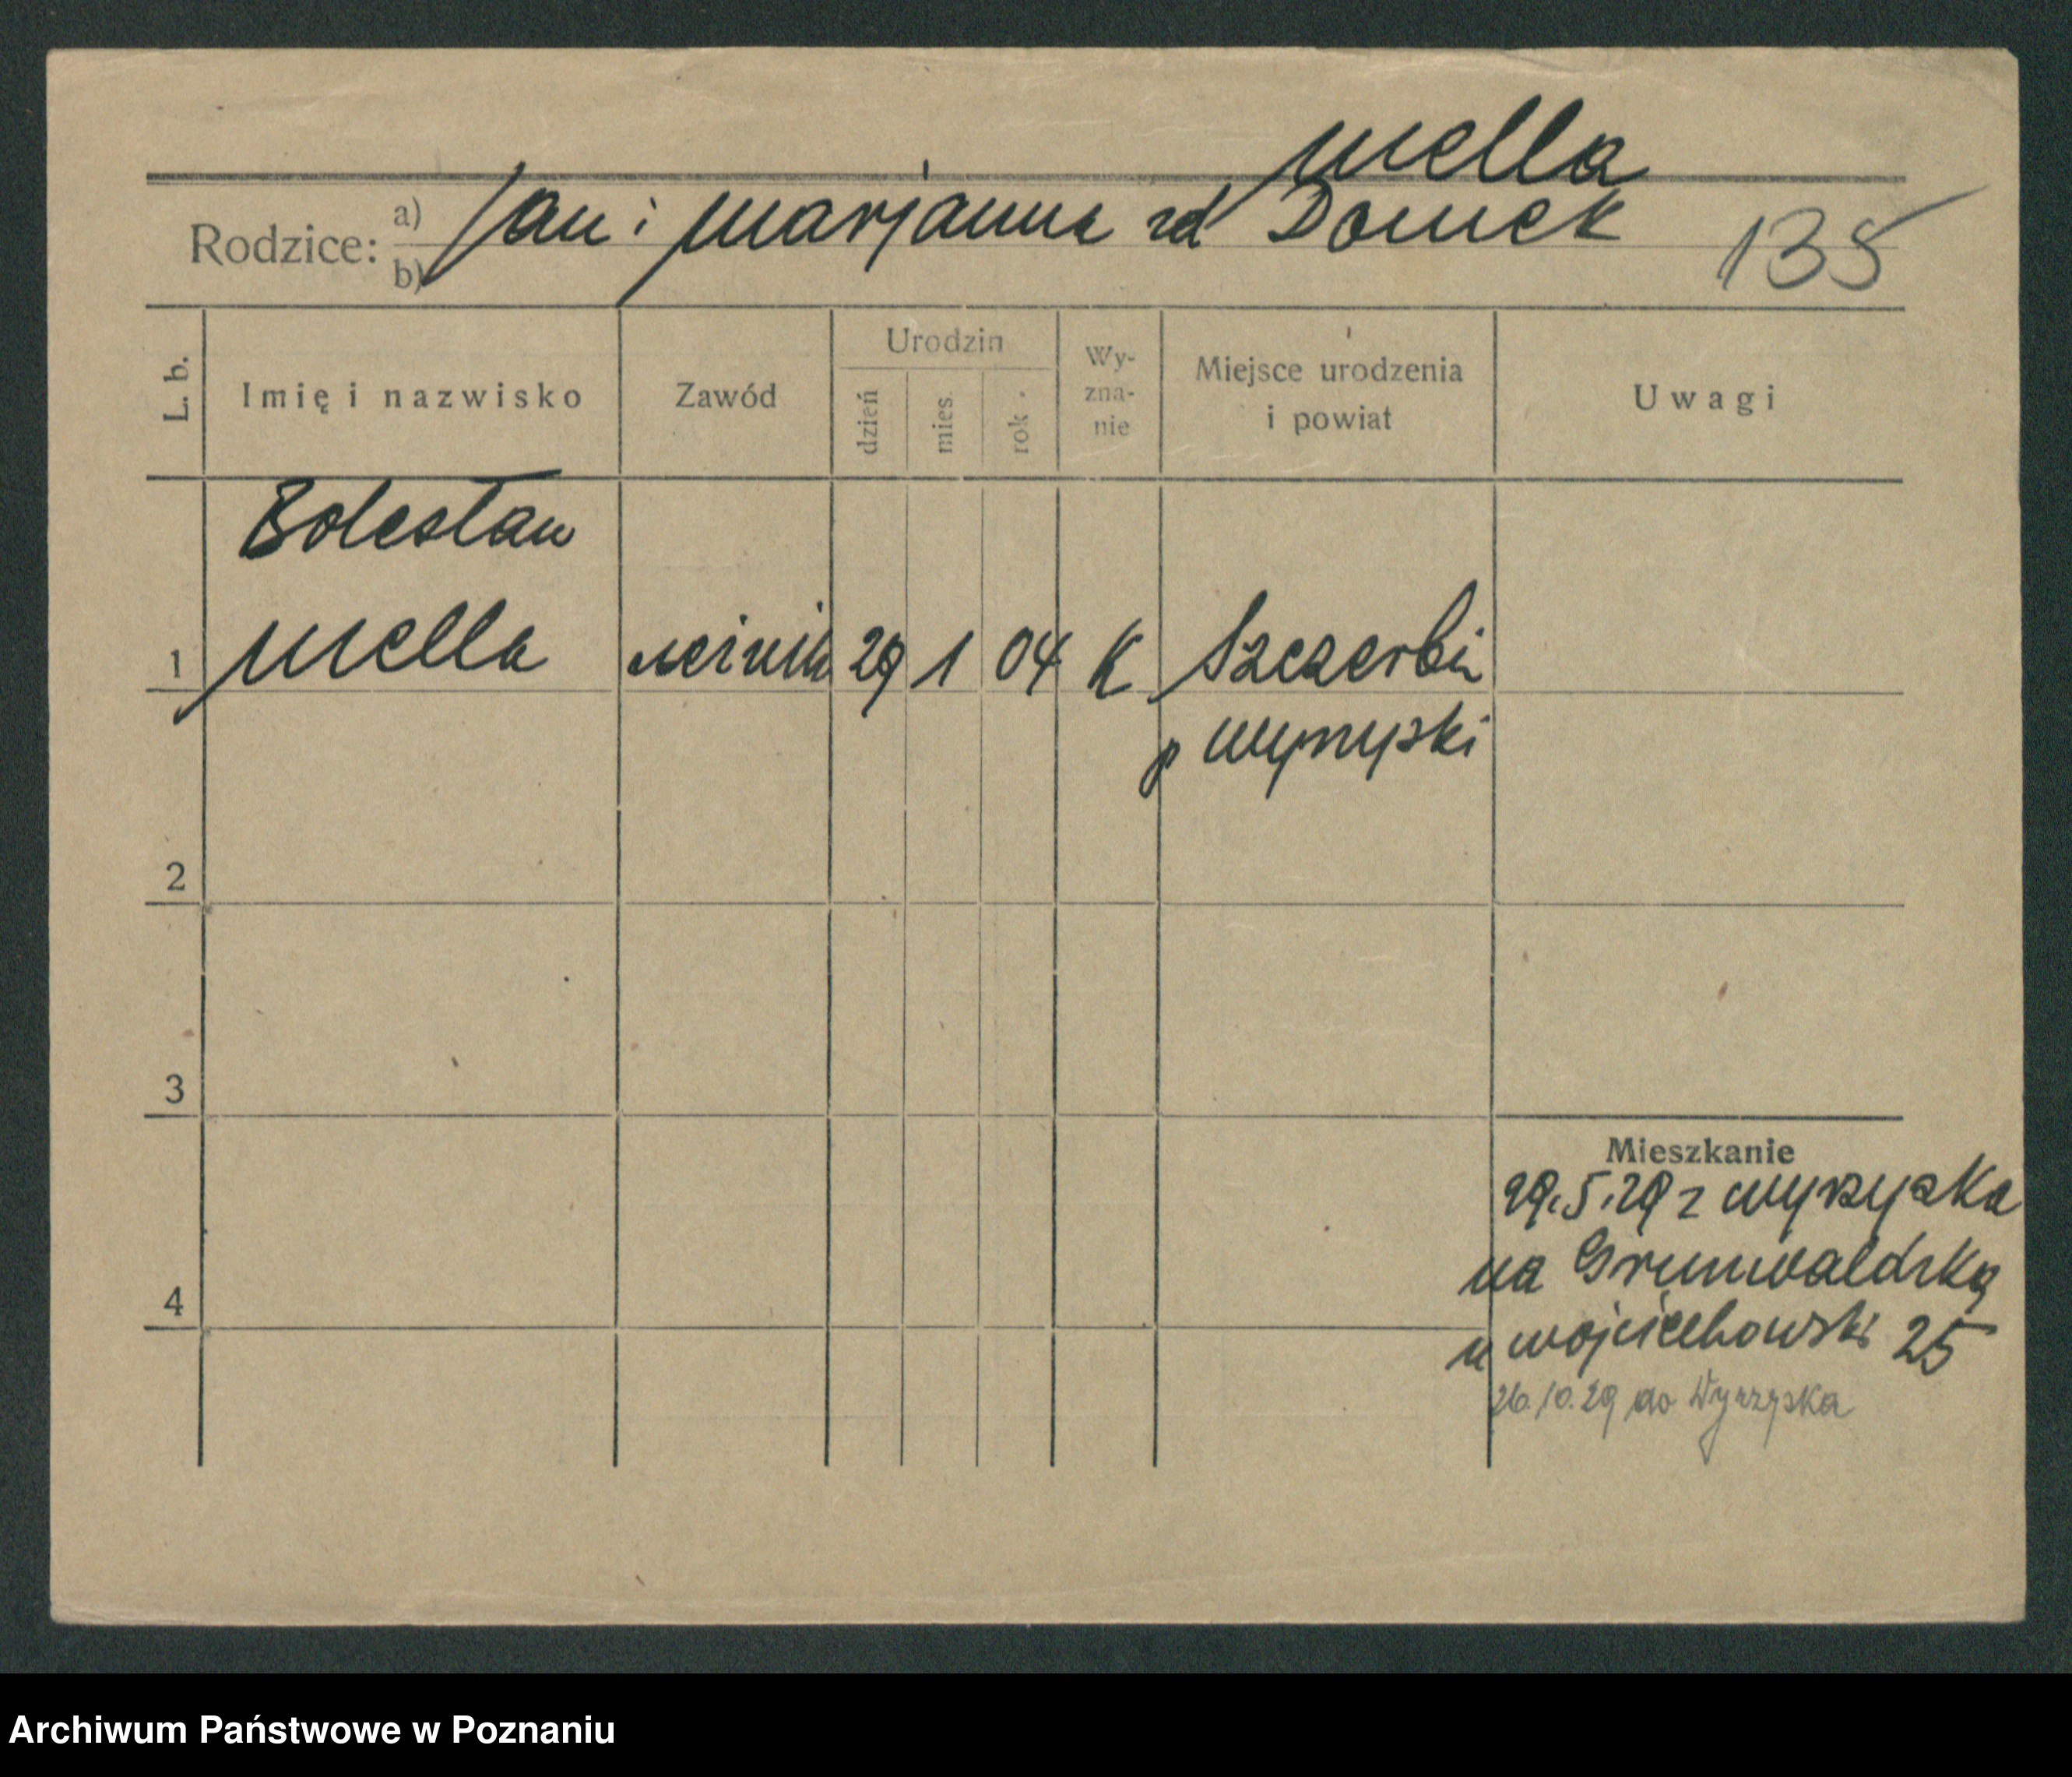 Mella
Rodzice: a) Jan i Marjanna zd Domek
b)
135
L. b.
Imię i nazwisko
Zawód
Urodzin
dzień
mies.
rok
Wy-
zna-
nie
Miejsce urodzenia
i powiat
Uwagi
Bolesław
1 Mella 29 1 04 K Szczerbin
p wyrzyski
2
3
4
Mieszkanie
29.5.29 z Wyrzyska
na Grunwaldzką
u Wojciechowski 25
26.10.29 do Wyrzyska
Archiwum Państwowe w Poznaniu